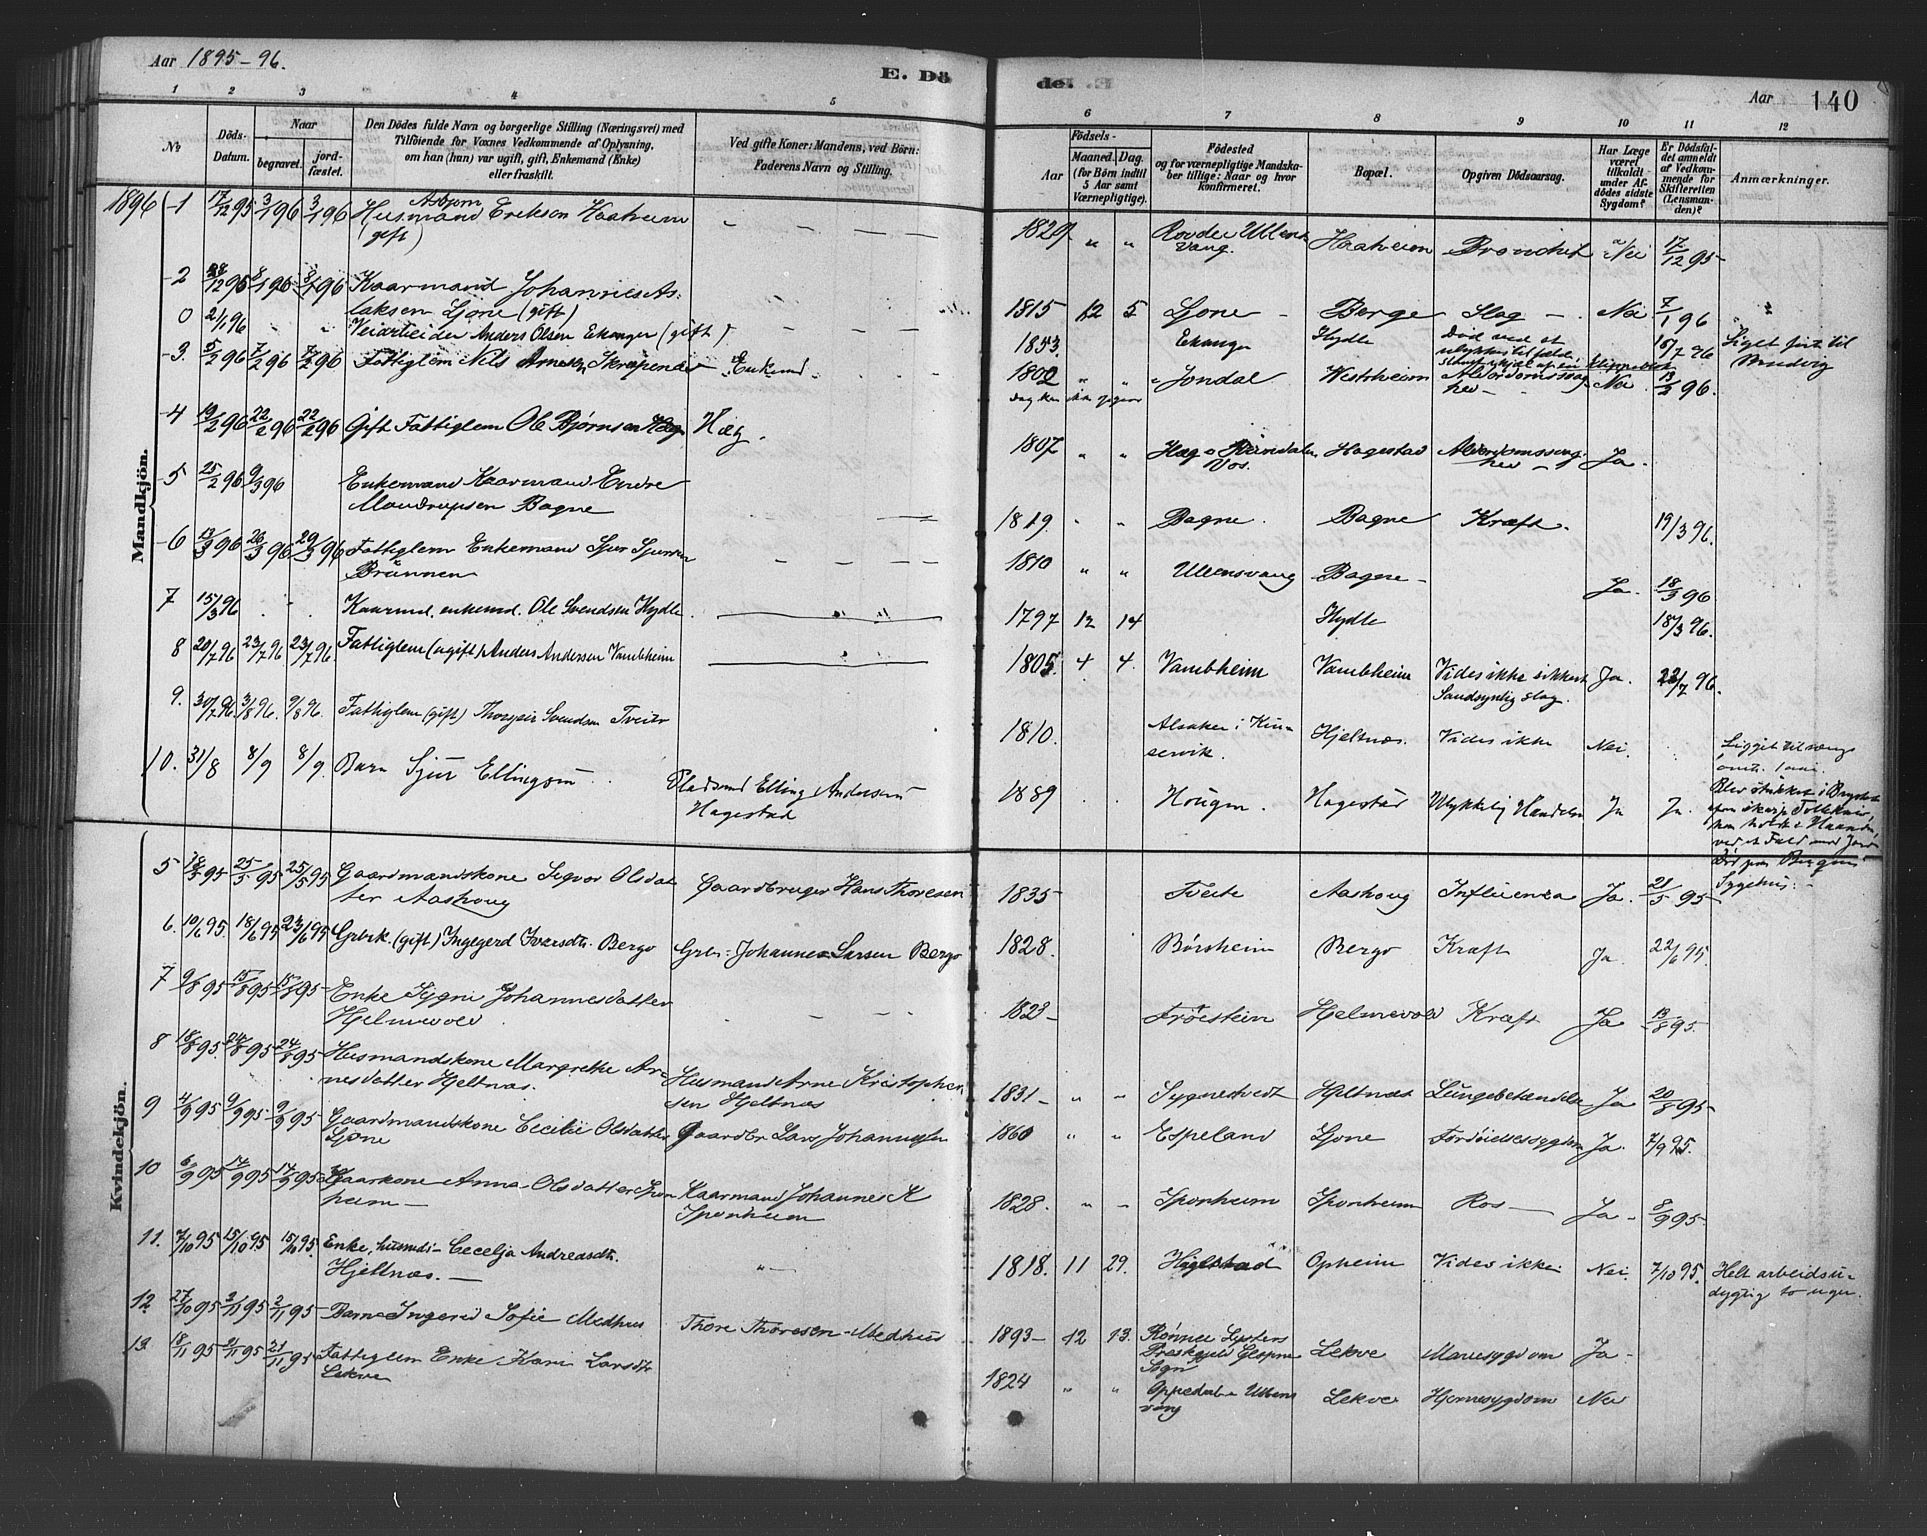 Aar 1895-96.
E. Dö
de.
Aar 140
1 2 3 4 5
6 7 8 9 10 11 12
No
Döds-Datum.
Naar
begravet.
jord-fæstet.
Den Dödes fulde Navn og borgerlige Stilling (Næringsvei) med
Tilföiende for Voxnes Vedkommende af Oplysning,
om han (hun) var ugift, gift, Enkemand (Enke)
eller fraskilt.
Ved gifte Koner: Mandens, ved Börn:
Faderens Navn og Stilling.
Födsels-
Aar
Maaned. Dag.
(for Börn indtil
5 Aar samt
Værnepligtige).
Födested
og for værnepligtige Mandska-
ber tillige: Naar og hvor
konfirmeret.
Bopæl.
Opgiven Dödsaarsag.
Har Læge
været
tilkaldt
under Af-
dödes sidste
Sygdom?
Er Dödsfal-
det anmeldt
af Vedkom-
mende for
Skifteretten
(Lensman-
den)?
Anmærkninger.
Mandkjön.
1896 1 17/12 95 3/1 96 3/1 96 Husmand Asbjørn Eriksen Haaheim
(gift)
Ullens-
vang. Haaheim Bronchit Nei 17/12 95
2 8/1 96 8/1 96 Kaarmand Johannes As-
laksen Ljone (gift) 1815 12 5 Ljone Berge Slag Nei 7/1 96
0 2/1 96 Veiarbeider Anders Olsen Ekanger (gift) 1853 Ekanger Hydle Død ved et
3. 5/2 96 7/2 96 7/2 96 Fattiglem Nels Enkemd. 1802 Jondal Westrheim Alderdomssvag
hed Nei 13/2 96.
4 19/2 96 22/2 96 22/2 96 Gift Fattiglem Ole Bjørnsen Hæg Hæg. 1807 Hagestad Alderdomssvag-
Vos. hed Ja.
5 25/2 96 9/3 96 Enkemand Kaarmand Endre
Mandrupsen Bagne 1819. Bagne. Bagne Kræft. 19/3 96.
6 13/3 96 26/3 96 29/3 96 Fattiglem Enkemand Sjur Sjursen
1810 Ullensvang Bagne Ja. 18/3 96
7 15/3 96 Kaarmd. enkemd. Ole Svendsen Hydle 1797 12 14 Hydle 18/3 96.
8 20/7 96 23/7 96 23/7 96. Fattiglem (ugift) Anders Andersen Vambheim 1805. 4 4. Vambheim Vambheim Vides ikke sikkert
Sandsynlig slag. Ja. 22/7 96.
9. 30/7 96. 3/8 96. 9/8 96. Fattiglem (gift) Svendsen Tveito 1810. Alsaker i Kin-
servik. Hjeltnæs. Vides ikke Nei.
10. 31/8 8/9 8/9. Barn Sjur Ellingsen Pladsmd Elling Andersen
Hagestad 1889 Hougen. Hagestad Ulykkelig Hændelse Ja Ja.
Kvindekjön.
5 18/5 95 25/5 95 25/5 95 Gaardmandskone Sigvor Olsdat-
ter Aashoug Gaardbruger Hans Thoresen 1835 Tveite Aashoug Influenza Ja. 21/5 95
Sygehus.
6. 10/6 95. 18/6 95 23/6 95 Grbrk. (gift) Ingegerd Ivarsdtr. Bergo Grbr. Johannes Larsen Bergo 1828. Børsheim Bergo Kræft Ja. 22/6 95.
7 9/8 95 15/8 95 15/8 95 Enke Sygni Johannesdatter
Hjelmevold 1823 Frøestein Hjelmevold Kræft Ja 13/8 95.
8 18/8 95. 24/8 95 24/8 95 Husmandskone Margrethe Ar-
nesdatter Hjeltnæs. Husmand Arne Kristopher-
sen Hjeltnæs 1831 Sygnestvedt Hjeltnæs Lungebetændelse Ja 20/8 95
9 4/9 95 9/9 95 9/9 95 Gaardmandskone Cecilie Olsdatter
Ljone Gaardbr Lars Johannessen 1860 Espeland Ljone Ja. 7/9 95.
10 6/9 95 14/9 95 14/9 95 Kaarkone Anna Olsdatter Spon-
heim Kaarmand Johannes K
Sponheim 1828. Sponheim Sponheim Ros Ja 8/9 95
11. 7/10 95 15/10 95 15/10 95. Enke, husmds- Cecelja Andreasdtr.
Hjeltnæs. 1818. 11 29. Opheim Vides ikke Nei. 7/10 95. Helt arbeidsu-
dygtig to uger.
12 27/10 95 2/11 95 2/11 95 Barn Ingerid Sofie Medhus Thore Thoresen Medhus 1893 12 13. Lysters
Sogn Lekve Mavesygdom Ja
13 18/11 95 21/11 95 21/11 95 Fattiglem Enke Kari Larsdtr
Lekve 1824 Oppedal Ullens-
vang Lekve Hjernesygdom Nei